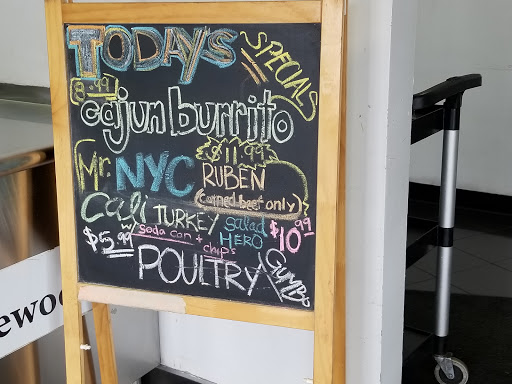 TODAYS
SPECIALS
8.99
cajun burrito
$11.99
Mr. NYC RUBEN
(corned beef only)
Cali TURKEY salad HERO $10.99
w/ soda can + chips
$5.99
POULTRY GUMBO
ewoo